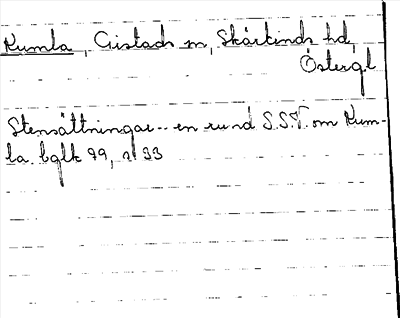 Kumla, Gistads sn, Skärkinds hd,
Östergl
Stensättningar - en rund S.S.V. om Kum-
la. bglk 99, nr 33